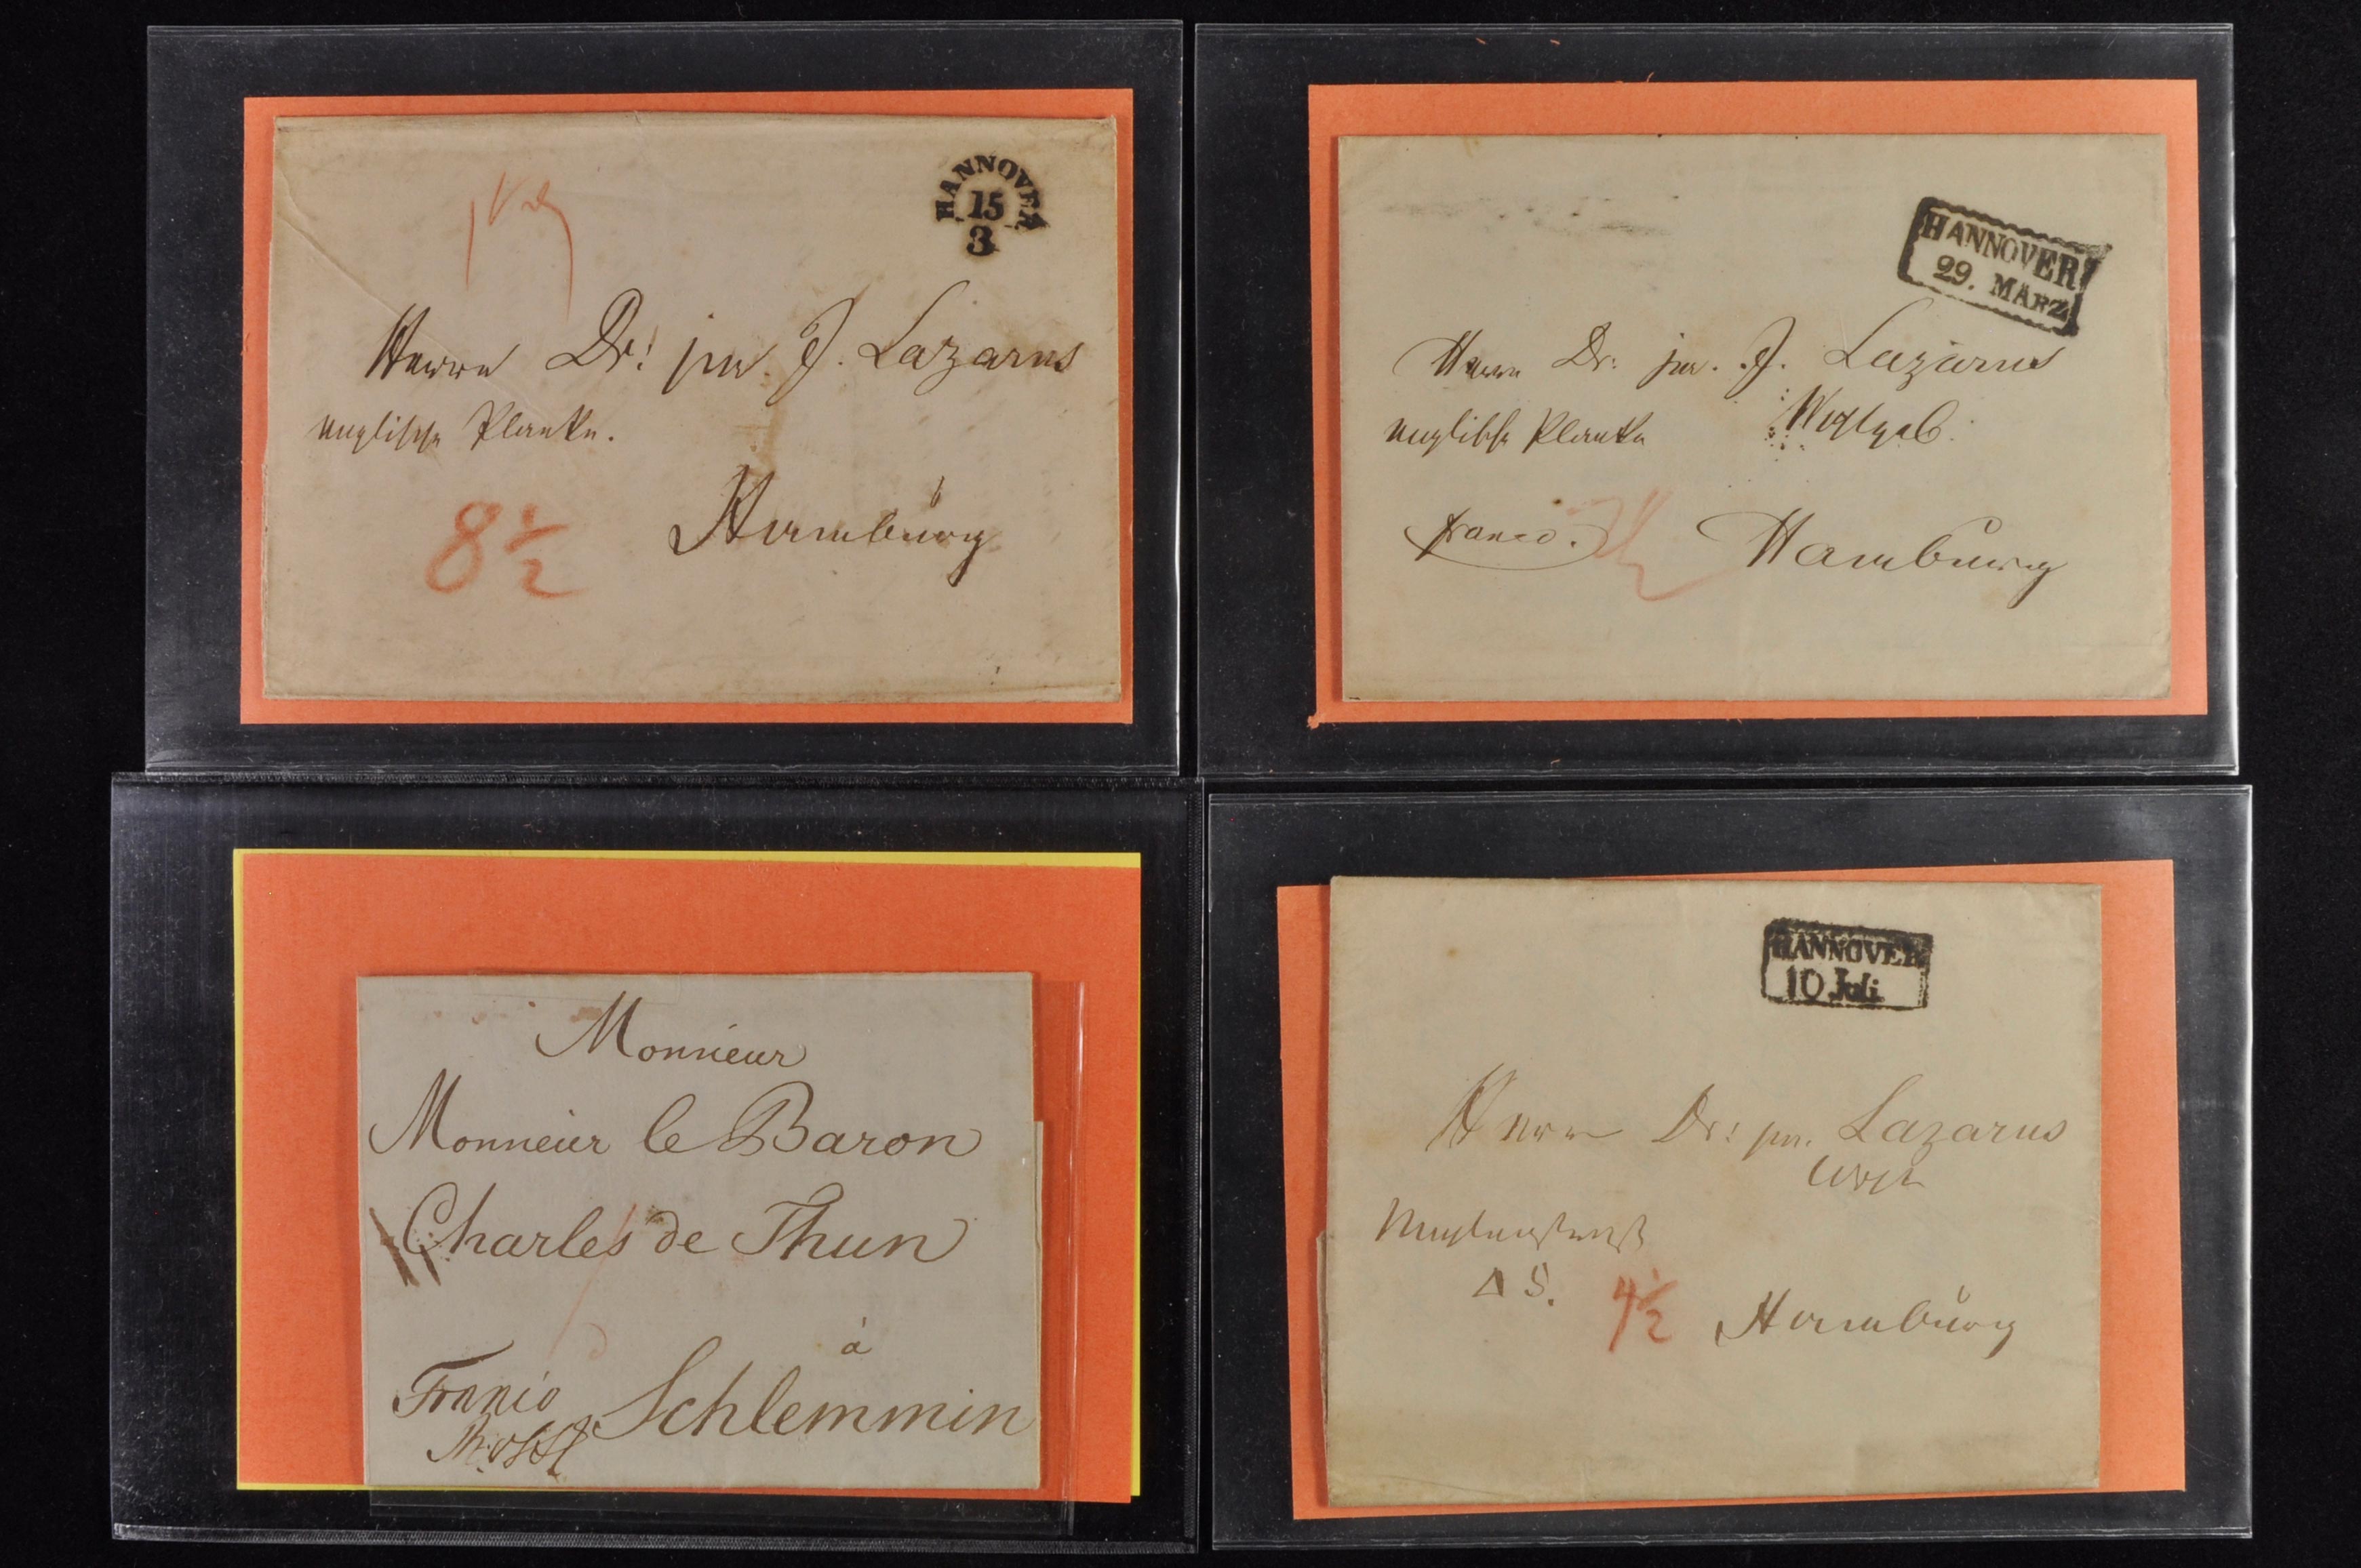 HANNOVER
15
3
Herrn Dr: jur. J. Lazarus
englische Planke.
8 1/2
Hamburg
HANNOVER
29. MÄRZ
Herrn Dr: jur. J. Lazarus
englische Planke
franco.
Hamburg
Monsieur
Monsieur le Baron
Charles de Thun
à
Franco Schlemmin
HANNOVER
10 Juli
Herrn Dr: jur. Lazarus
4 1/2 Hamburg